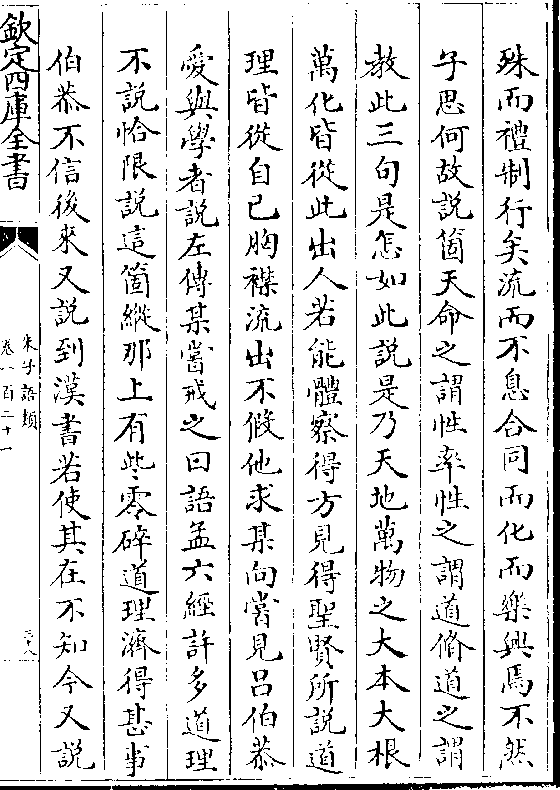 殊而禮制行矣流而不息合同而化而樂興焉不然
子思何故說箇天命之謂性率性之謂道脩道之謂
教此三句是怎如此說是乃天地萬物之大本大根
萬化皆從此出人若能體察得方見得聖賢所說道
理皆從自己胸襟流出不假他求某向嘗見呂伯恭
愛與學者說左傳某嘗戒之曰語孟六經許多道理
不說恰限說這箇縱那上有些零碎道理濟得甚事
伯恭不信後來又說到漢書若使其在不知今又說
欽定四庫全書
朱子語類
卷一百二十一
三十八